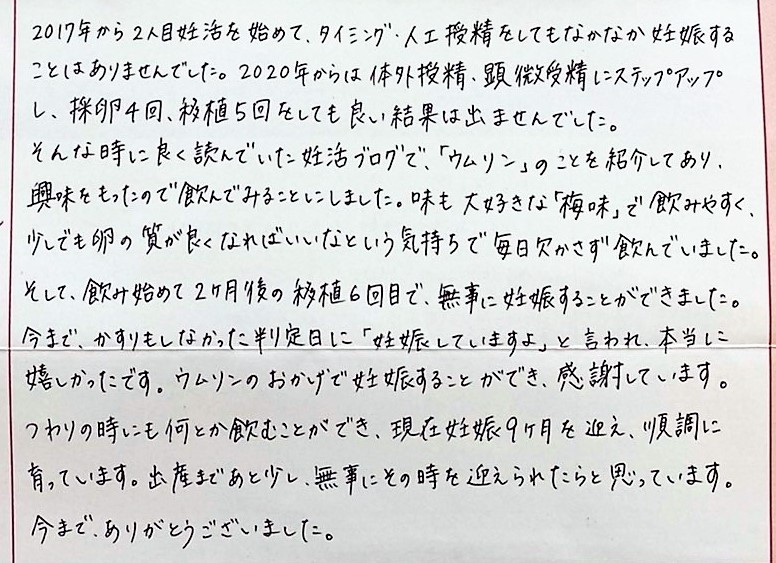 2017年から2人目妊活を始めて、タイミング・人工授精をしてもなかなか妊娠する
ことはありませんでした。2020年からは体外授精、顕微受精にステップアップ
し、採卵4回、移植5回をしても良い結果は出ませんでした。
そんな時に良く読んでいた妊活ブログで、「ウムリン」のことを紹介してあり、
興味をもったので飲んでみることにしました。味も大好きな「梅味」で飲みやすく、
少しでも卵の質が良くなればいいなという気持ちで毎日欠かさず飲んでいました。
そして、飲み始めて2ヶ月後の移植6回目で、無事に妊娠することができました。
今まで、かすりもしなかった判定日に「妊娠していますよ」と言われ、本当に
嬉しかったです。ウムリンのおかげで妊娠することができ、感謝しています。
つわりの時にも何とか飲むことができ、現在妊娠9ヶ月を迎え、順調に
育っています。出産まであと少し、無事にその時を迎えられたらと思っています。
今まで、ありがとうございました。